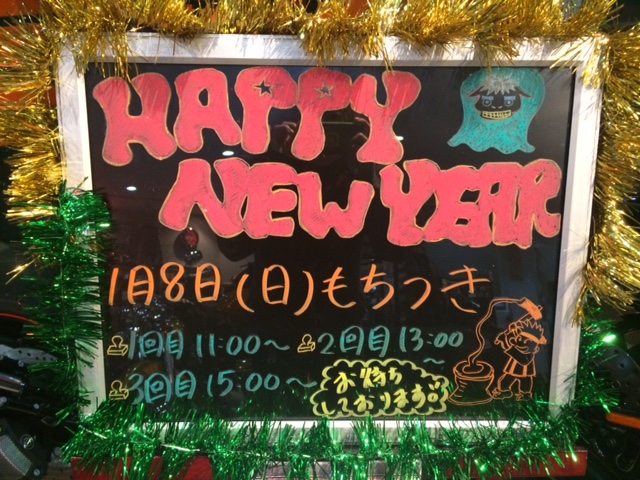 HAPPY
NEW YEAR
1月8日(日)もちつき
1回目 11:00〜 2回目 13:00〜
3回目 15:00〜
お待ち
しております!!